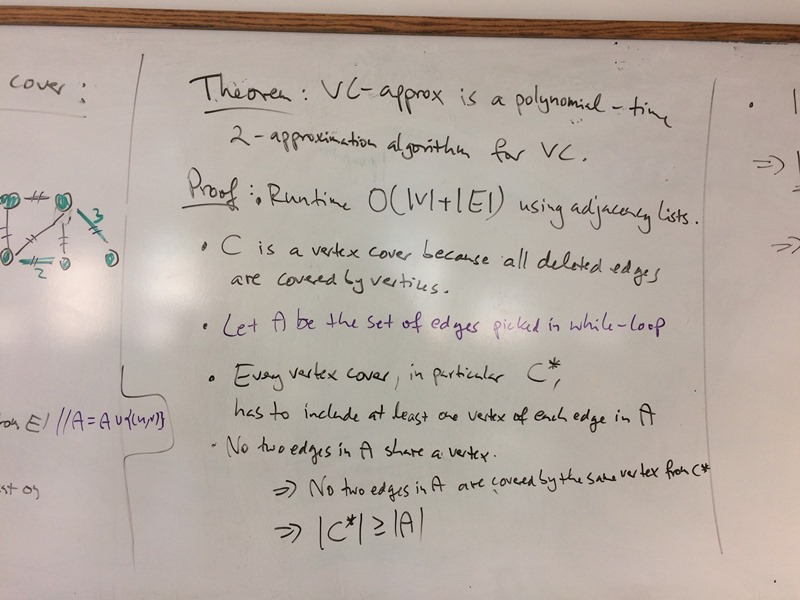 cover:
3
2
E) // A = A ∪ {(u,v)}
Theorem: VC-approx is a polynomial-time
2-approximation algorithm for VC.
Proof: • Runtime O(|V|+|E|) using adjacency lists.
• C is a vertex cover because all deleted edges
are covered by vertices.
• Let A be the set of edges picked in while-loop
• Every vertex cover, in particular C*,
has to include at least one vertex of each edge in A
• No two edges in A share a vertex.
⇒ No two edges in A are covered by the same vertex from C*
⇒ |C*| ≥ |A|
•
⇒
⇒